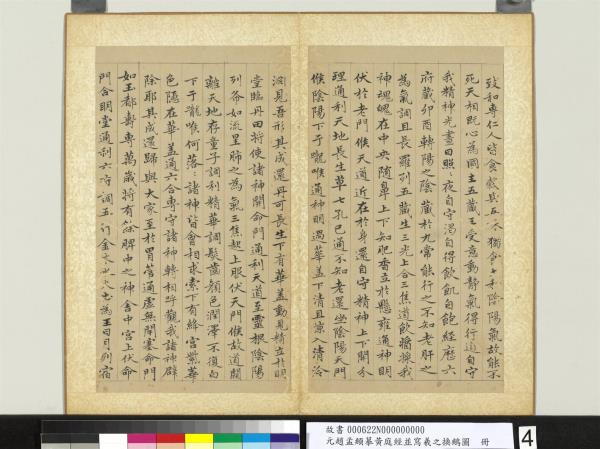 致和專仁人皆食穀與五味獨食太和陰陽氣故能不
死天相既心為國主五藏王受意動靜氣得行道自守
我精神光晝日照〻夜自守渴自得飲飢自飽經歷六
府藏卯酉轉陽之陰藏於九常能行之不知老肝之
為氣調且長羅列五藏生三光上合三焦道飲醬漿我
神魂魄在中央隨鼻上下知肥香立於懸雍通神明
伏於老門候天道近在於身還自守精神上下開分
理通利天地長生草七孔已通不知老還坐陰陽天門
候陰陽下于嚨喉通神明過華蓋下清且涼入清泠
淵見吾形其成還丹可長生下有華蓋動見精立於明
堂臨丹田將使諸神開命門通利天道至靈根陰陽
列布如流星肺之為氣三焦起上服伏天門候故道闚
離天地存童子調利精華調髮齒顏色潤澤不復白
下于嚨喉何落〻諸神皆會相求索下有絳宮紫華
色隱在華蓋通六合專守諸神轉相呼觀我諸神辟
除耶其成還歸與大家至於胃管通虛無閉塞命門
如玉都壽專萬歲將有餘脾中之神舍中宮上伏命
門合明堂通利六府調五行金木水火土為王日月列宿
故書 000622N000000000
元趙孟頫摹黃庭經並寫羲之換鵝圖 冊
4